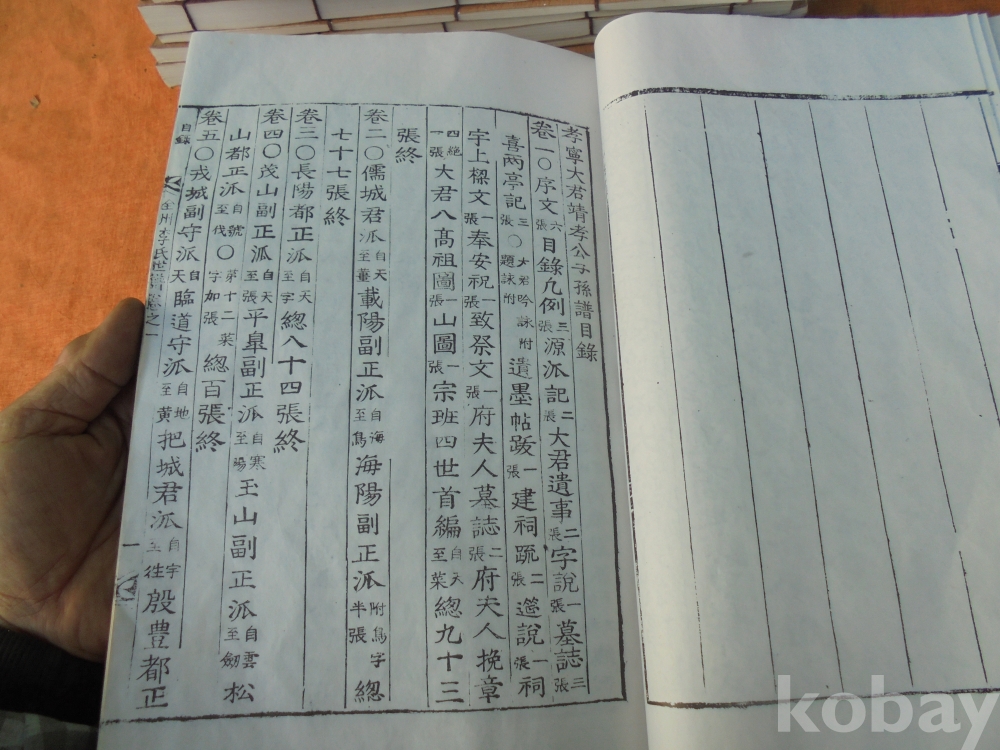 孝寧大君靖孝公子孫譜目錄
卷一〇序文六張目錄凡例三張源派記二張大君遺事二張字說一張墓誌三張
喜雨亭記三張〇大君吟詠附題詠附遺墨帖跋一張建祠䟽二張 說一張祠
宇上樑文一張奉安祝一張致祭文一張府夫人墓誌二張府夫人挽章
四絕一張大君八高祖圖一張山圖一張宗班四世首編自天至菜總九十三
張終
卷二〇儒城君派自天至薑載陽副正派自海至鳥海陽副正派附鳥字半張總
七十七張終
卷三〇長陽都正派自天至字總八十四張終
卷四〇茂山副正派自天至張平臯副正派自寒至陽玉山副正派自雲至劒松
山都正派自號至伐〇第十二菜字加張總百張終
卷五〇戎城副守派自天臨道守派自地至黃把城君派自宇至往殷豊都正
目錄
全州李氏世譜卷之一
一
kobay